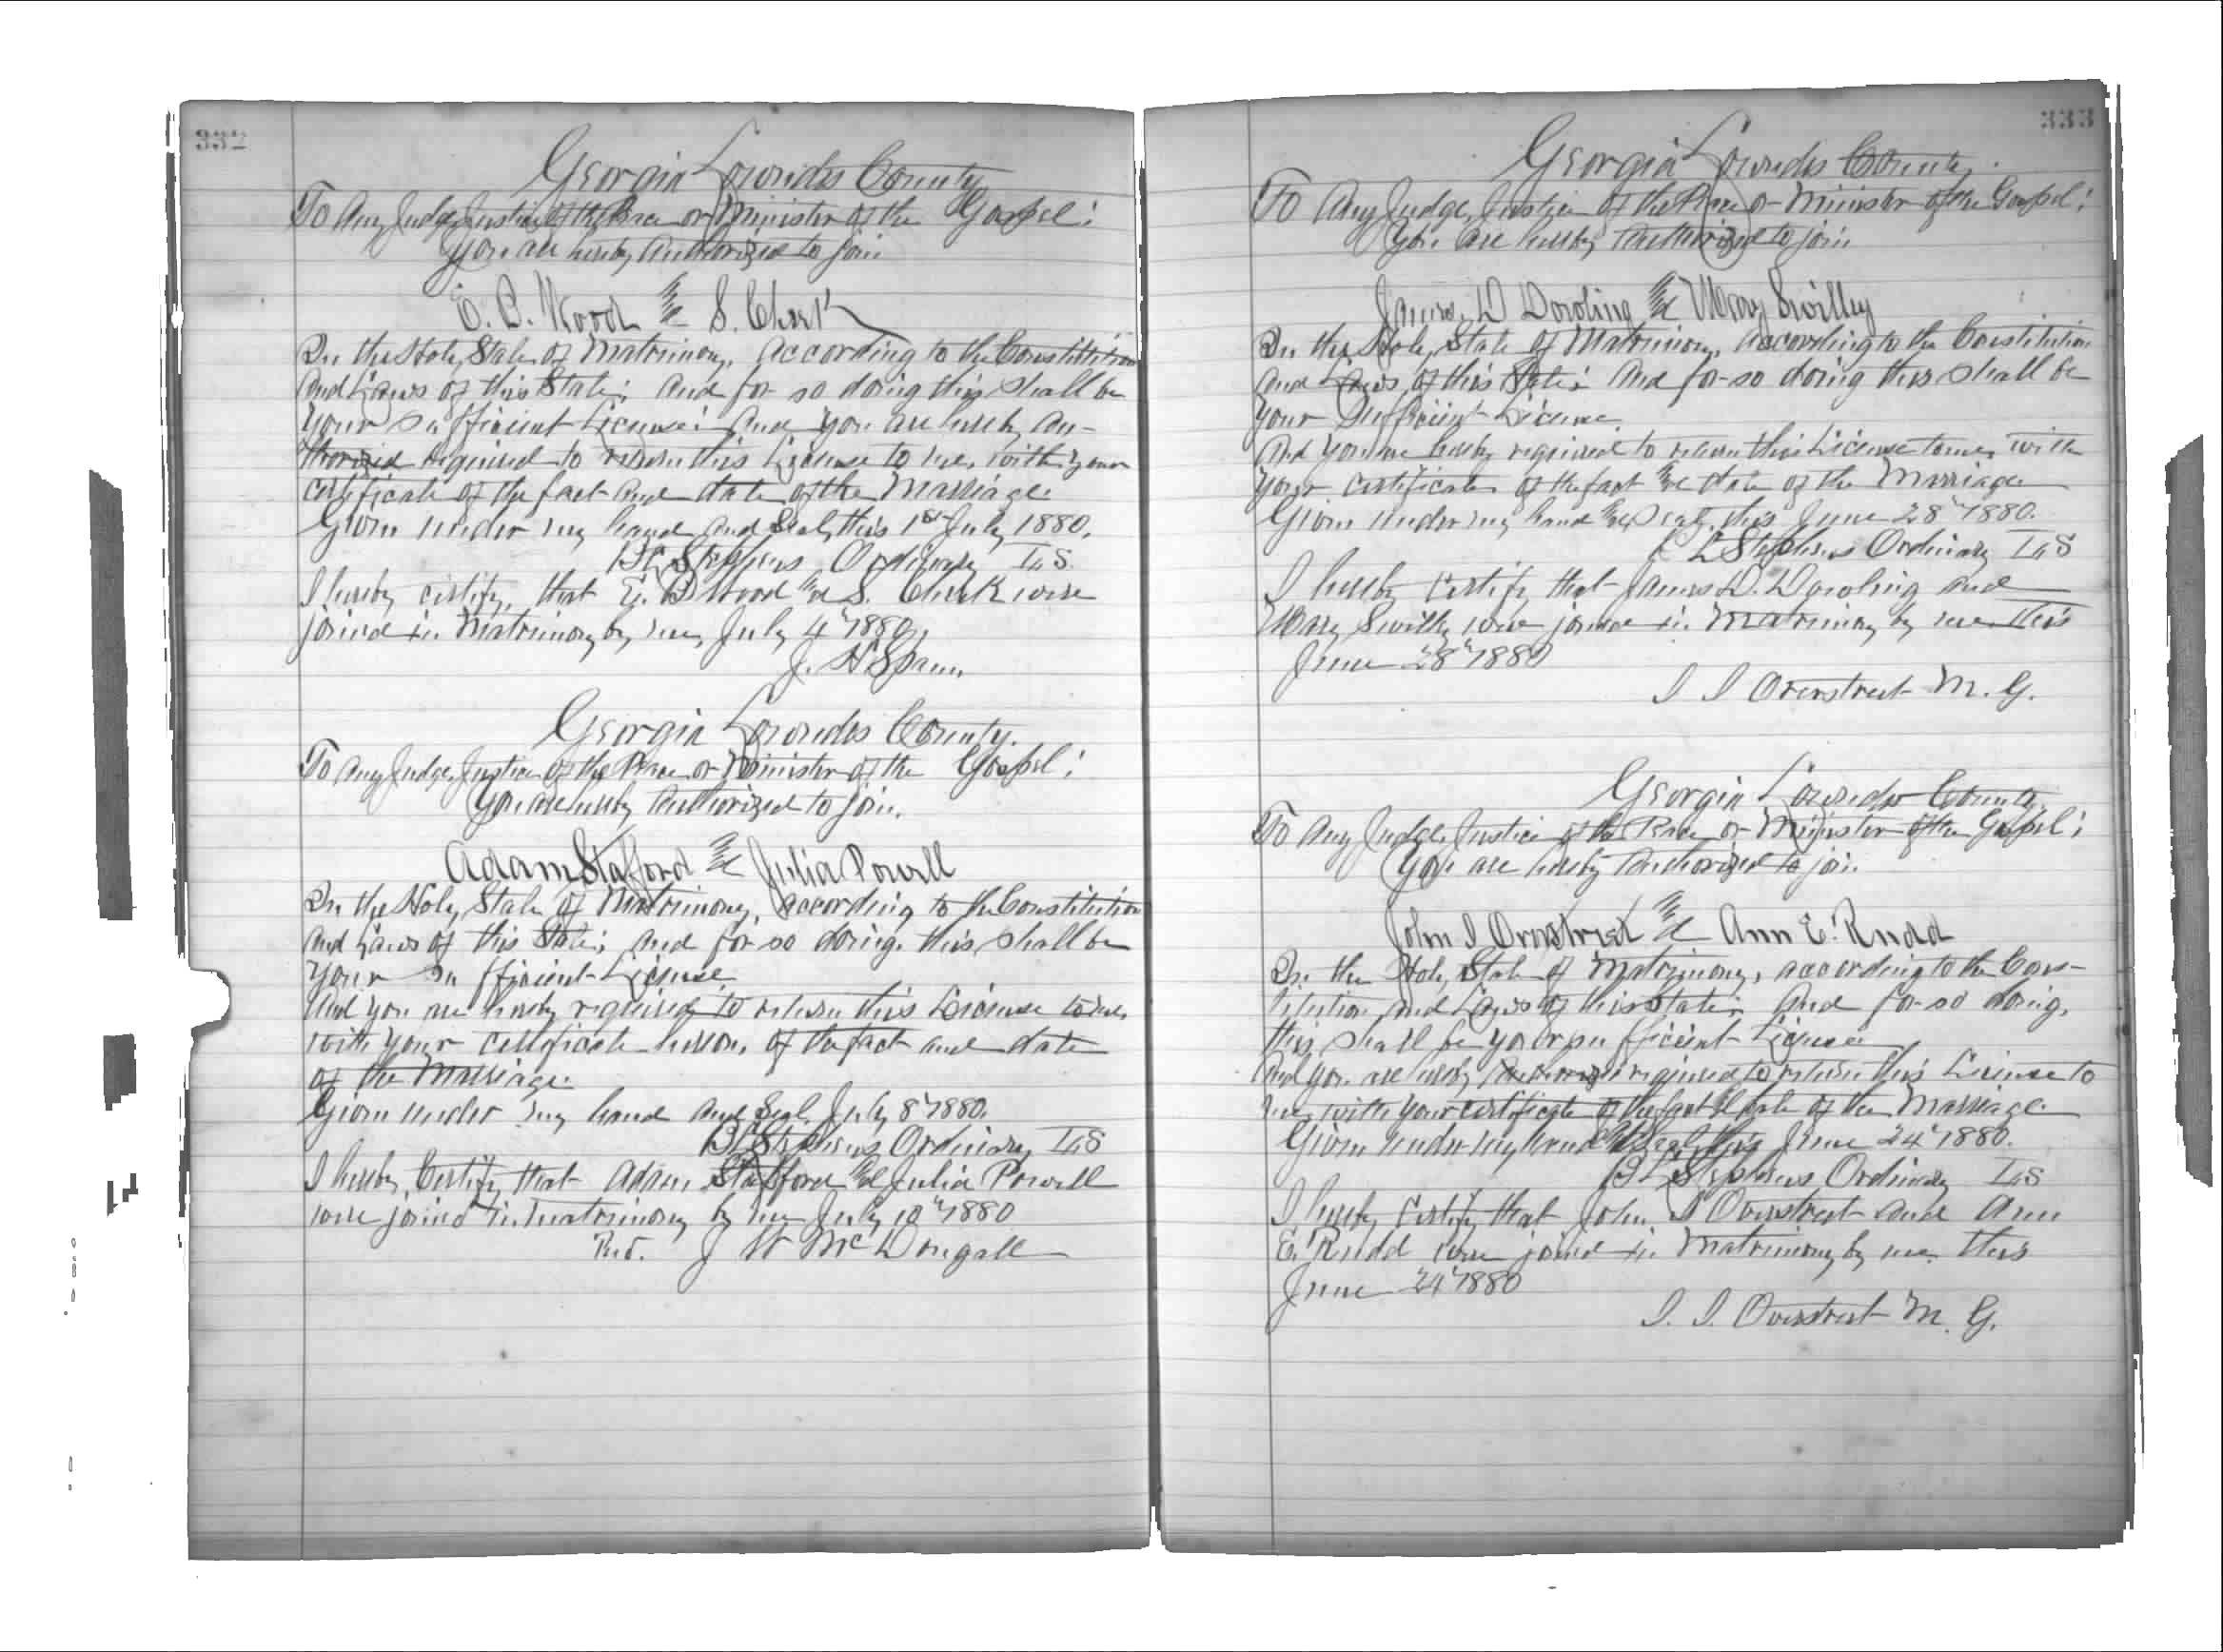 332
Georgia Lowndes County
To Any Judge, Justice of the Peace or Minister of the Gospel:
You are hereby authorized to join
E. B. Wood and S. Clark
In the Holy State of Matrimony, According to the Constitution
And Laws of this State; And for so doing this shall be
your sufficient License: And you are hereby au-
thorized required to return this License to me, with your
certificate of the fact and date of the Marriage.
Given under my hand and Seal, this 1st July 1880.
Stephens Ordinary L.S.
I hereby certify, that E. B Wood and S. Clark were
joined in Matrimony by me, July 4" 1880,
J. H
Georgia Lowndes County.
To Any Judge, Justice of the Peace or Minister of the Gospel:
You are hereby authorized to join.
Adam Stafford and Julia Powell
In the Holy State of Matrimony, according to the Constitution
And Laws of this State; And for so doing, this shall be
Your sufficient License.
And you are hereby required to return this License to me,
with your certificate hereon, of the fact and date
of the Marriage.
Given under my hand and Seal July 8" 1880.
Stephens Ordinary L S
I hereby Certify that Adam Stafford and Julia Powell
were joined in matrimony by me July 10" 1880
J W McDougall
333
Georgia Lowndes County.
To Any Judge, Justice of the Peace or Minister of the Gospel:
You are hereby authorized to join
James D Dowling and Mary Swilley
In the Holy State of Matrimony, according to the Constitution
and Laws of this State: And for so doing this shall be
Your Sufficient License.
And you are hereby required to return this License to me, with
your certificate of the fact and date of the Marriage
Given under my hand and Seal, this June 28" 1880.
Stephens Ordinary L S
I hereby certify that James D. Dowling and
Mary Swilley were joined in Matrimony by me this
June 28" 1880
I I Overstreet M. G.
Georgia Lowndes County
To Any Judge, Justice of the Peace or Minister of the Gospel:
You are hereby authorized to join
John I Overstreet and Ann E. Rudd
In the Holy State of Matrimony, according to the Cons-
titution and Laws of this State; And for so doing,
this shall be your sufficient License
And you are hereby authorized required to return this License to
me, with your certificate of the fact & date of the Marriage.
Given under my hand and Seal this June 24" 1880.
Stephens Ordinary L S
I hereby certify that John I Overstreet and Ann
E. Rudd were joined in Matrimony by me this
June 24" 1880
I. I. Overstreet M. G.